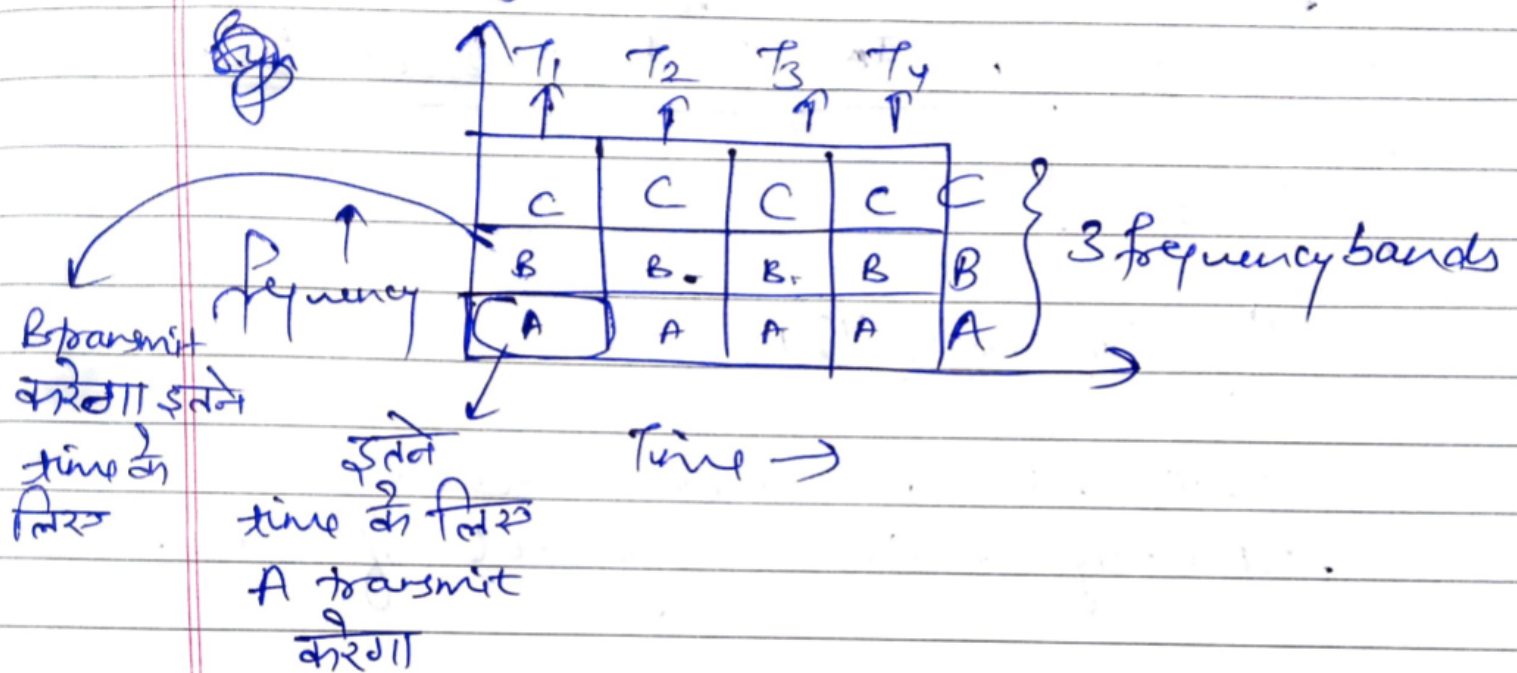 T1 T2 T3 T4
C C C C C
B B. B. B B
A A A A A
3 frequency bands
frequency
B transmit
करेगा इतने
time के
लिए
इतने
time के लिए
A transmit
करेगा
Time →